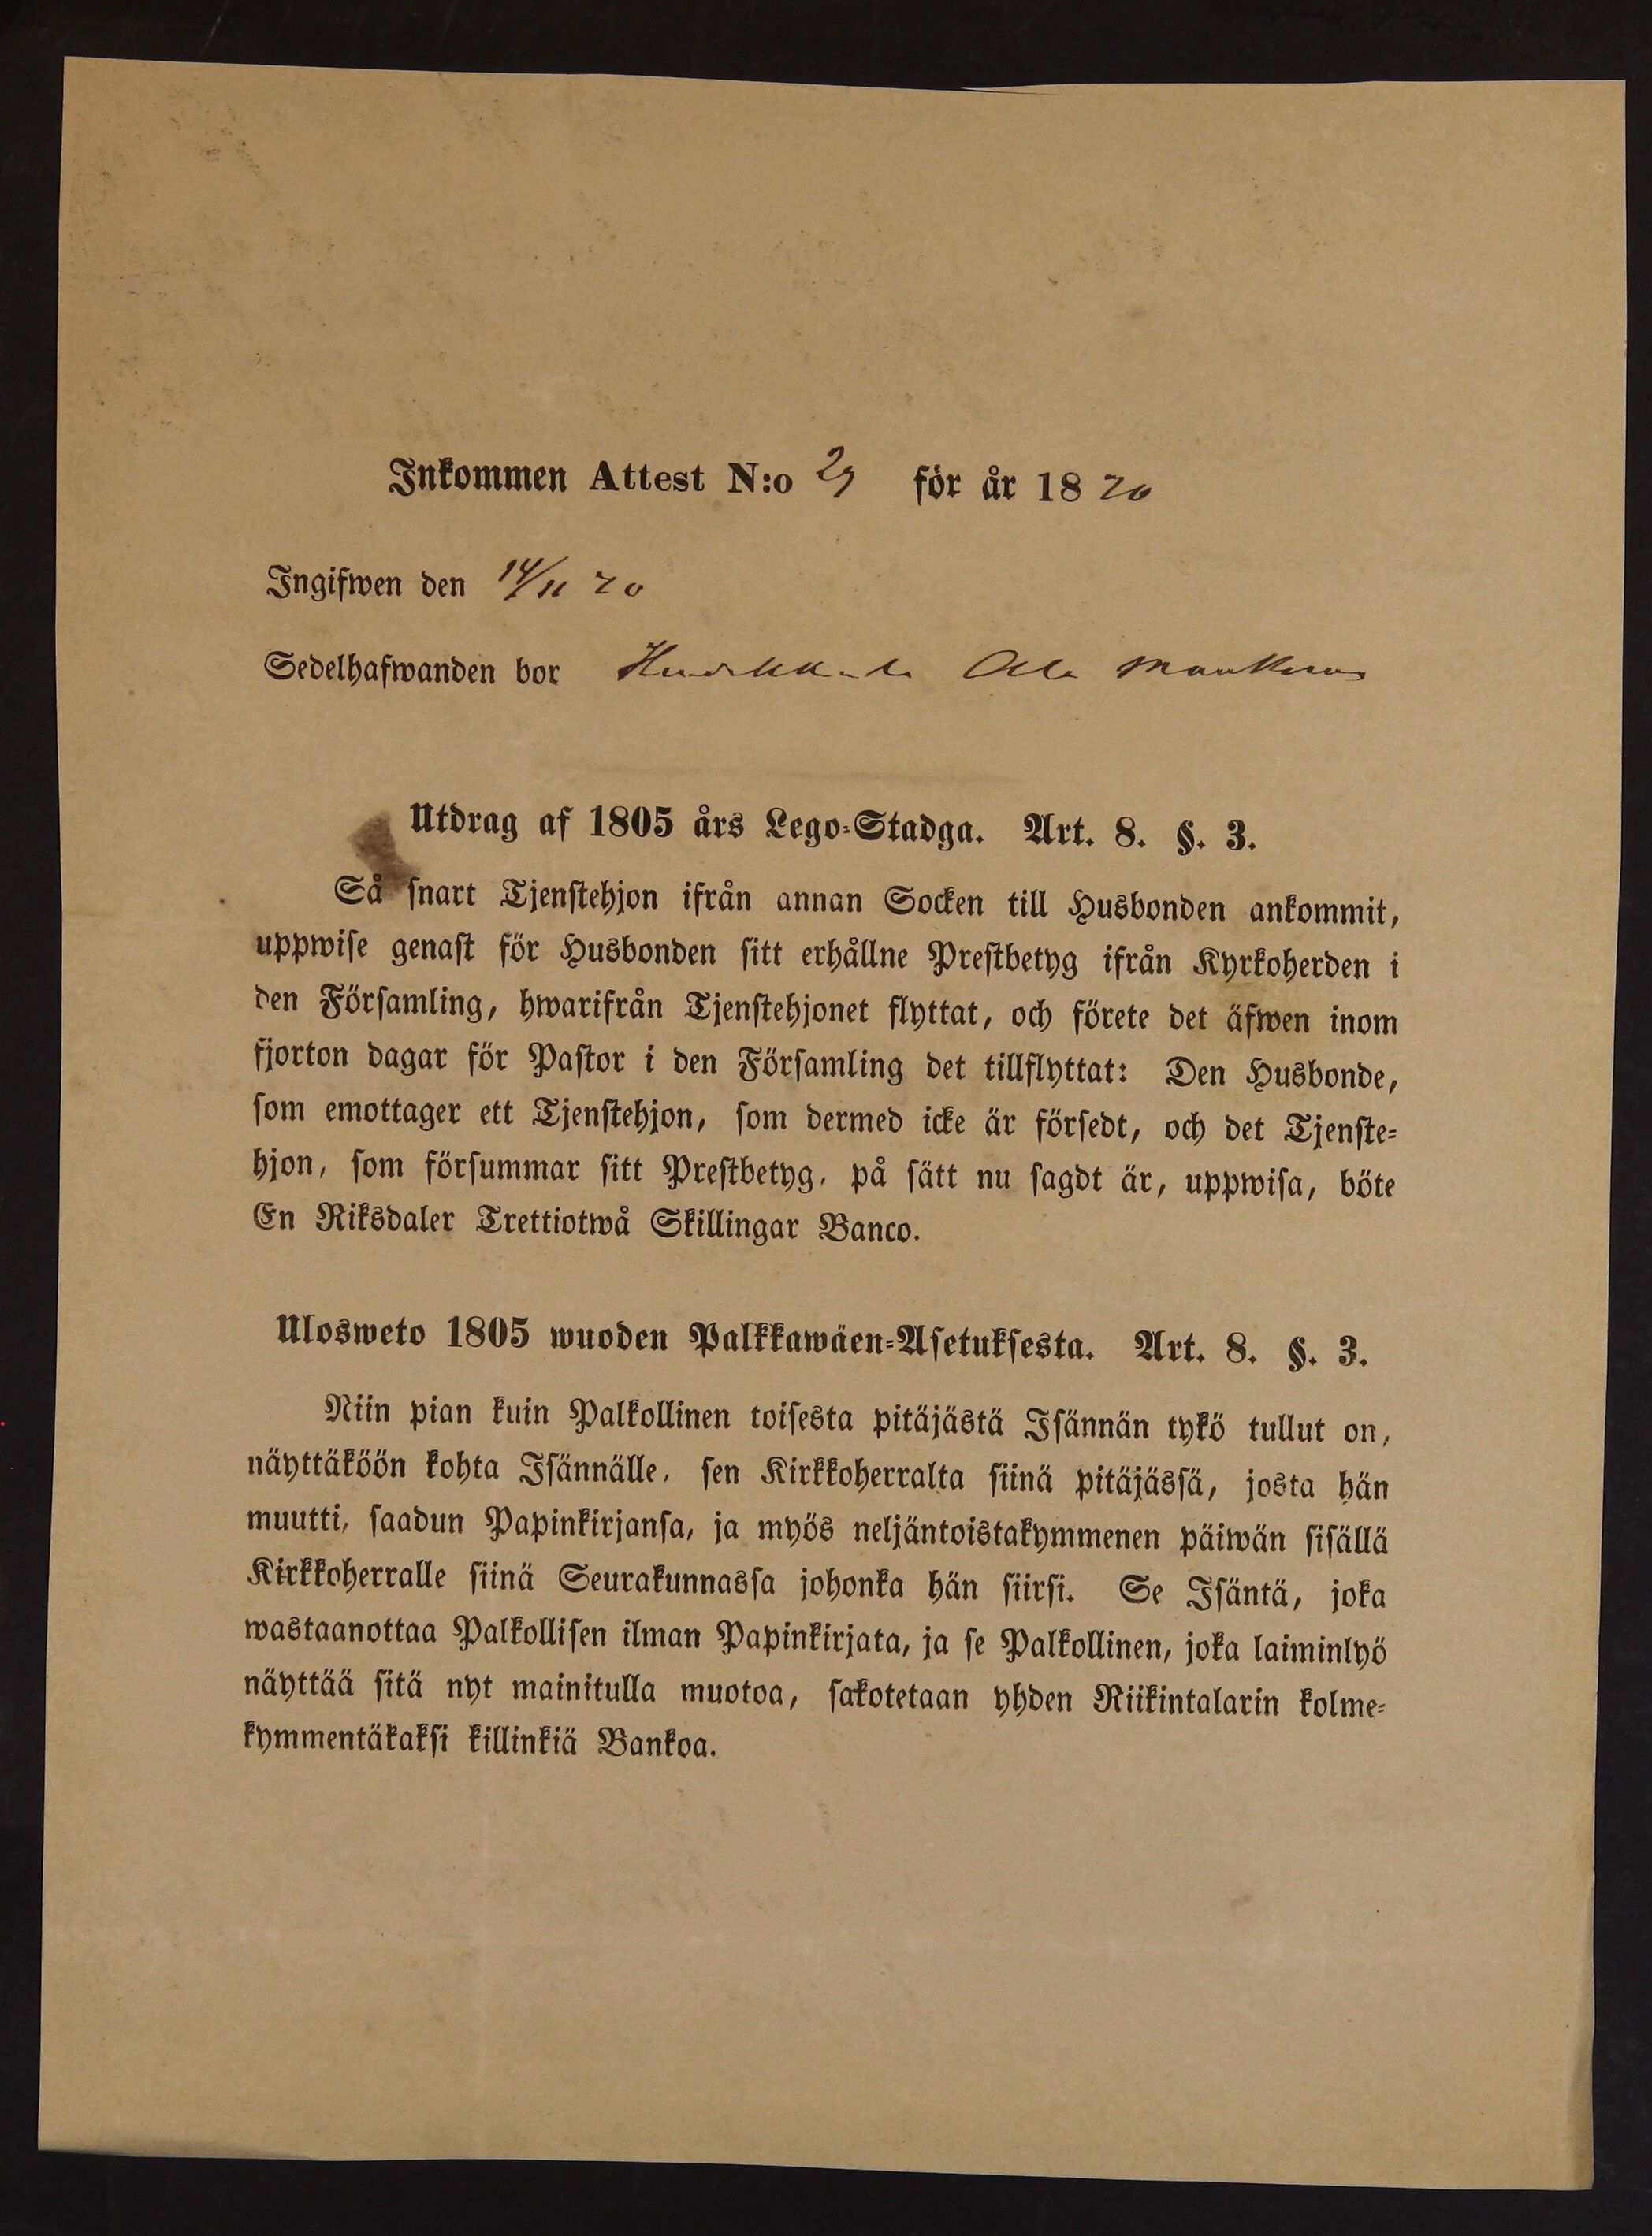 Inkommen Attest N:o 29 för år 1870
Ingifwen den 14/11 70
Sedelhafwanden bor
Utdrag af 1805 års Lego-Stadga. Art. 8. §. 3.
Så snart Tjenstehjon ifrån annan Socken till Husbonden ankommit,
uppwise genast för Husbonden sitt erhållne Prestbetyg ifrån Kyrkoherden i
den Församling, hwarifrån Tjenstehjonet flyttat, och förete det äfwen inom
fjorton dagar för Pastor i den Församling det tillflyttat: Den Husbonde,
som emottager ett Tjenstehjon, som dermed icke är försedt, och det Tjenste-
hjon, som försummar sitt Prestbetyg, på sätt nu sagdt är, uppwisa, böte
En Riksdaler Trettiotwå Skillingar Banco.
Ulosweto 1805 wuoden Palkkawäen-Asetuksesta. Art. 8. §. 3.
Niin pian kuin Palkollinen toisesta pitäjästä Isännän tykö tullut on,
näyttäköön kohta Isännälle, sen Kirkkoherralta siinä pitäjässä, josta hän
muutti, saadun Papinkirjansa, ja myös neljäntoistakymmenen päiwän sisällä
Kirkkoherralle siinä Seurakunnassa johonka hän siirsi. Se Isäntä, joka
wastaanottaa Palkollisen ilman Papinkirjata, ja se Palkollinen, joka laiminlyö
näyttää sitä nyt mainitulla muotoa, sakotetaan yhden Riikintalarin kolme-
kymmentäkaksi killinkiä Bankoa.